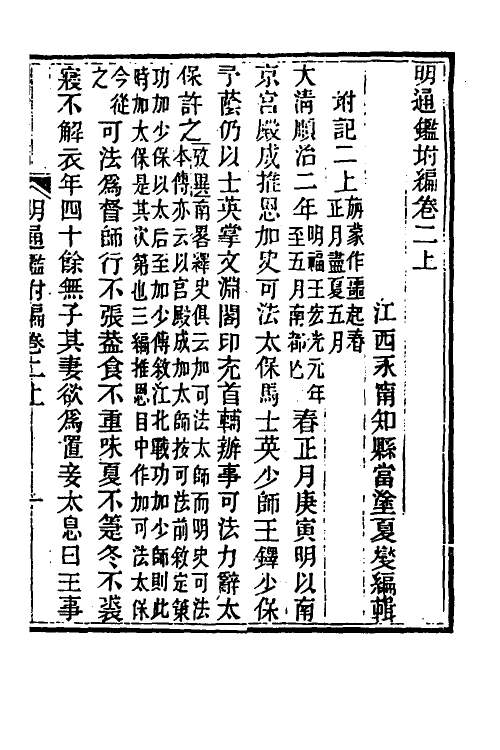 明通鑑坿編卷二上
江西永甯知縣當塗夏燮編輯
坿記二上旃蒙作噩起春正月盡夏五月
大清順治二年明福王宏光元年至五月南都亡春正月庚寅明以南
京宮殿成推恩加史可法太保馬士英少師王鐸少保
予蔭仍以士英掌文淵閣印充首輔辦事可法力辭太
保許之攷異南畧繹史俱云加可法太師而明史可法本傳亦云以宮殿成加太師按可法前敘定策
功加少保以太后至加少傅敘江北戰功加少師則此時加太保是其次第也三編推恩目中作加可法太保
今從之可法爲督師行不張葢食不重味夏不箑冬不裘
寢不解衣年四十餘無子其妻欲爲置妾太息曰王事
明通鑑坿編卷二上
一